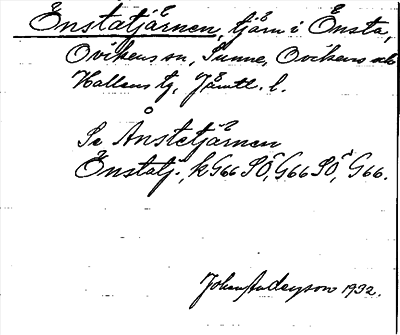 Önstatjärnen, tjärn i Önsta,
Ovikens sn, Sunne, Ovikens och
Hallens tg, Jämtl. l.
Se Ånstetjärnen
Önstatj., k G66 SÖ, G66 SÖ, G66.
Johan Anderson 1932.